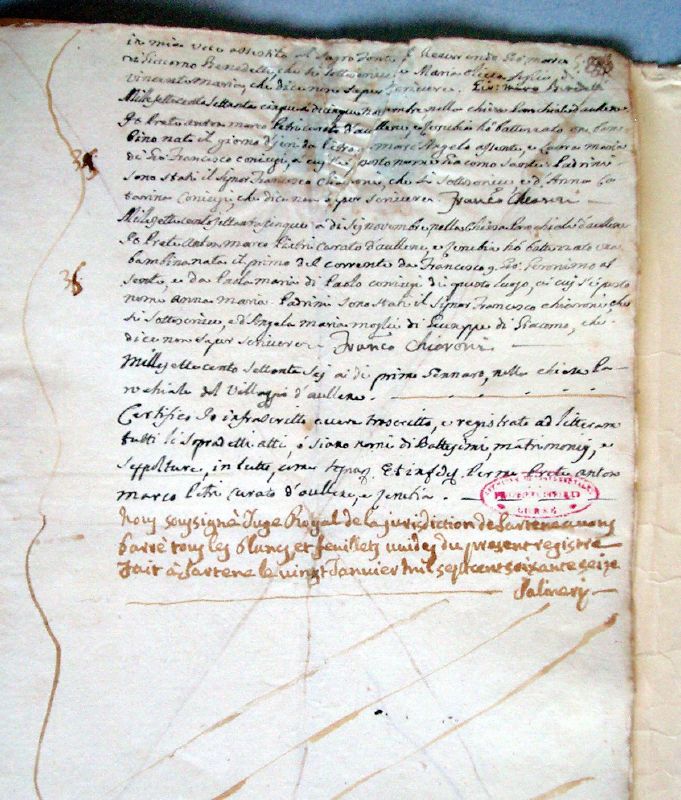 in mia vece assistito al Sagro Fonte il Reverendo Gio: Maria
di Giacomo Benedetti, che si sottoscrive, e Maria figlia di
Vincente Maria, che dice non saper scrivere.
Millesettecento settanta cinque a di cinque novembre nella chiesa Parochiale d'aullene
Io Prete Anton Marco Pietri curato d'aullene, e Zerubia hò battezzato un bam
bino nato il giorno di da Pietro Marc'Angelo assente, e Laura Maria
di Gio: Francesco coniugi, a cui s'è posto nome Giacomo Santo. Padrini
sono stati il Signor Francesco Chiaroni, che si sottoscrive, e d'Anna Ca
tarina coniugi, che dice non saper scrivere. Franco Chiaroni
35
Millesettecento settanta cinque a di Sej novembre nella Chiesa Parochiale d'aullene
Io Prete Anton Marco Pietri Curato d'aullene, e Zerubia hò battezzato una
36
bambina nata il primo del corrente da Francesco q. Gio: Geronimo as
sente, e da Paola Maria di Paolo coniugi di questo luogo, a cui s'è posto
nome Anna Maria. Padrini sono stati il Signor Francesco Chiaroni, che
si sottoscrive, ed Angela Maria moglie di Giuseppe di Giacomo, che
dice non saper scrivere. Franco Chiaroni
Millesettecento settanta Sej a di primo Gennaro, nella chiesa Pa-
rochiale del Villaggio d'aullene.
Certifico Io infrascritto avere trascritto, e registrato ad litteram
tutti li sopradetti atti, ò siano nomi di Battesimi, matrimonij, e
seppolture, in tutto, come Et in fede Prete Anton
Marco Pietri curato d'aullene, e Zerubia.
CORSE
Nous soussigné Juge Royal de la jurisdiction de Sartene avons
barré tous les blancs et feuillets vuides du present registre
Fait à Sartene le vingt Janvier mil sept cent soixante seize